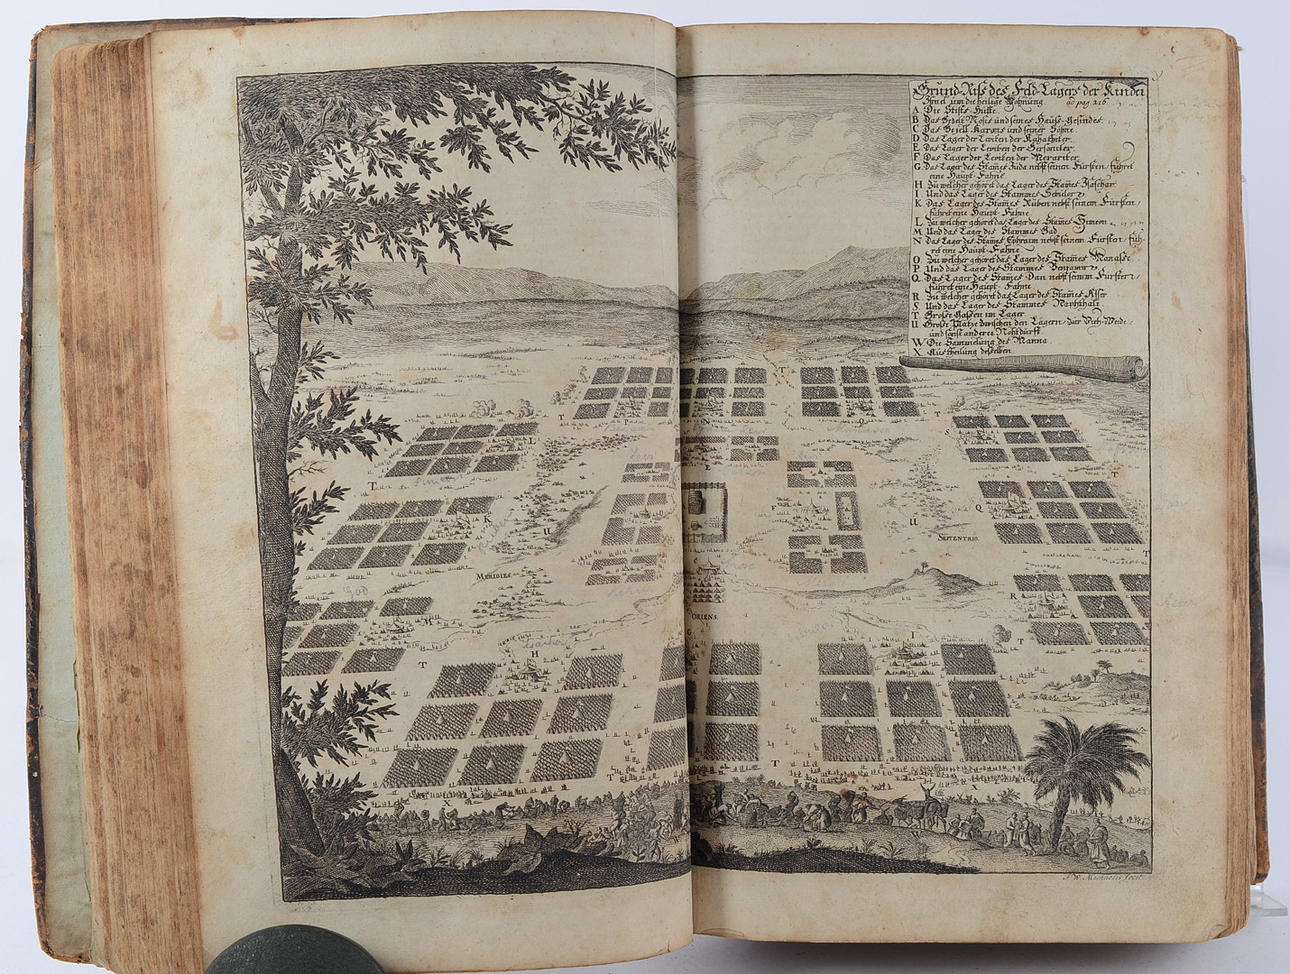 Grund-Riß des Feld-Lagers der Kinder
Israel um die heilige Wohnung. ad pag. 216
A. Die Stifts-Hütte.
B Das Gezelt Mosis und seines Hauß-Gesindes.
C Das Gezelt Aarons und seiner Söhne.
D Das Lager der Leviten der Kahathiter.
E Das Lager der Leviten der Gersoniter.
F Das Lager der Leviten der Merariter.
G Das Lager des Stam̄es Juda nebst seinem Fürsten / führet
eine Haupt-Fahne
H Zu welcher gehöret das Lager des Stam̄es Isaschar.
I Und das Lager des Stammes Sebulon
K Das Lager des Stam̄es Ruben nebst seinem Fürsten /
führet eine Haupt-Fahne
L Zu welcher gehöret das Lager des Stam̄es Simeon
M Und das Lager des Stammes Gad.
N Das Lager des Stam̄es Ephraim nebst seinem Fürsten / füh-
ret eine Haupt-Fahne
O. Zu welcher gehöret das Lager des Stam̄es Manasse.
P. Und das Lager des Stammes Benjamin
Q. Das Lager des Stam̄es Dan nebst seinem Fürsten /
führet eine Haupt-Fahne
R Zu welcher gehöret das Lager des Stam̄es Asser
S Und das Lager des Stammes Naphthali
T Große Gassen im Lager
U Große Plätze zwischen den Lägern / zur Vieh-Weide /
und sonst anderer Nohtdurft
W Die Sammelung des Manna
X Austheilung desselben
T P N T O T
L S
T T
K F Q
U SEPTENTRIO.
T
MERIDIES
R
ORIENS.
M G I T
T H
T T
X X